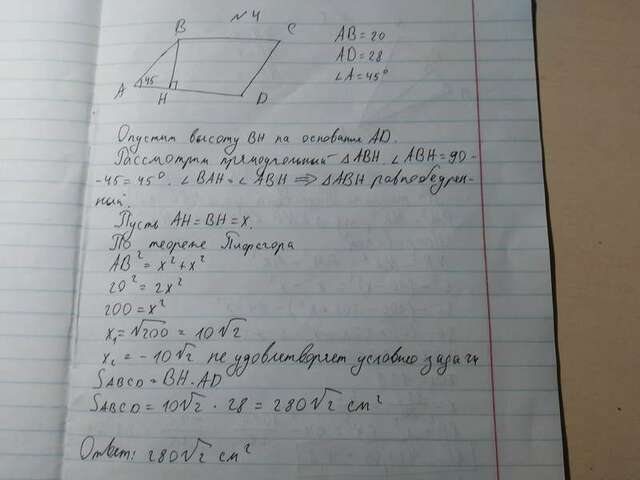 №4
B C
A 45 H D
AB = 20
AD = 28
∠A = 45°
Опустим высоту BH на основание AD.
Рассмотрим прямоугольный △ABH. ∠ABH = 90 -
- 45 = 45°. ∠BAH = ∠ABH ⇒ △ABH равнобедрен-
ный.
Пусть AH = BH = x.
По теореме Пифагора
AB² = x² + x²
20² = 2x²
200 = x²
x₁ = √200 = 10√2
x₂ = - 10√2 не удовлетворяет условию задачи
SABCD = BH · AD
SABCD = 10√2 · 28 = 280√2 см²
Ответ: 280√2 см²